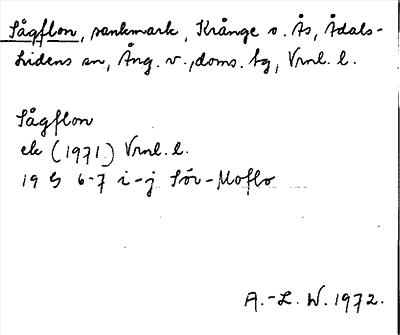 Sågflon, sankmark, Krånge o. Ås, Ådals-
Lidens sn, Ång. v., doms. bg, Vrnl. l.
Sågflon
ek (1971) Vrnl. l.
19 G 6-7 i-j Sör-Moflo
A.-L. W. 1972.